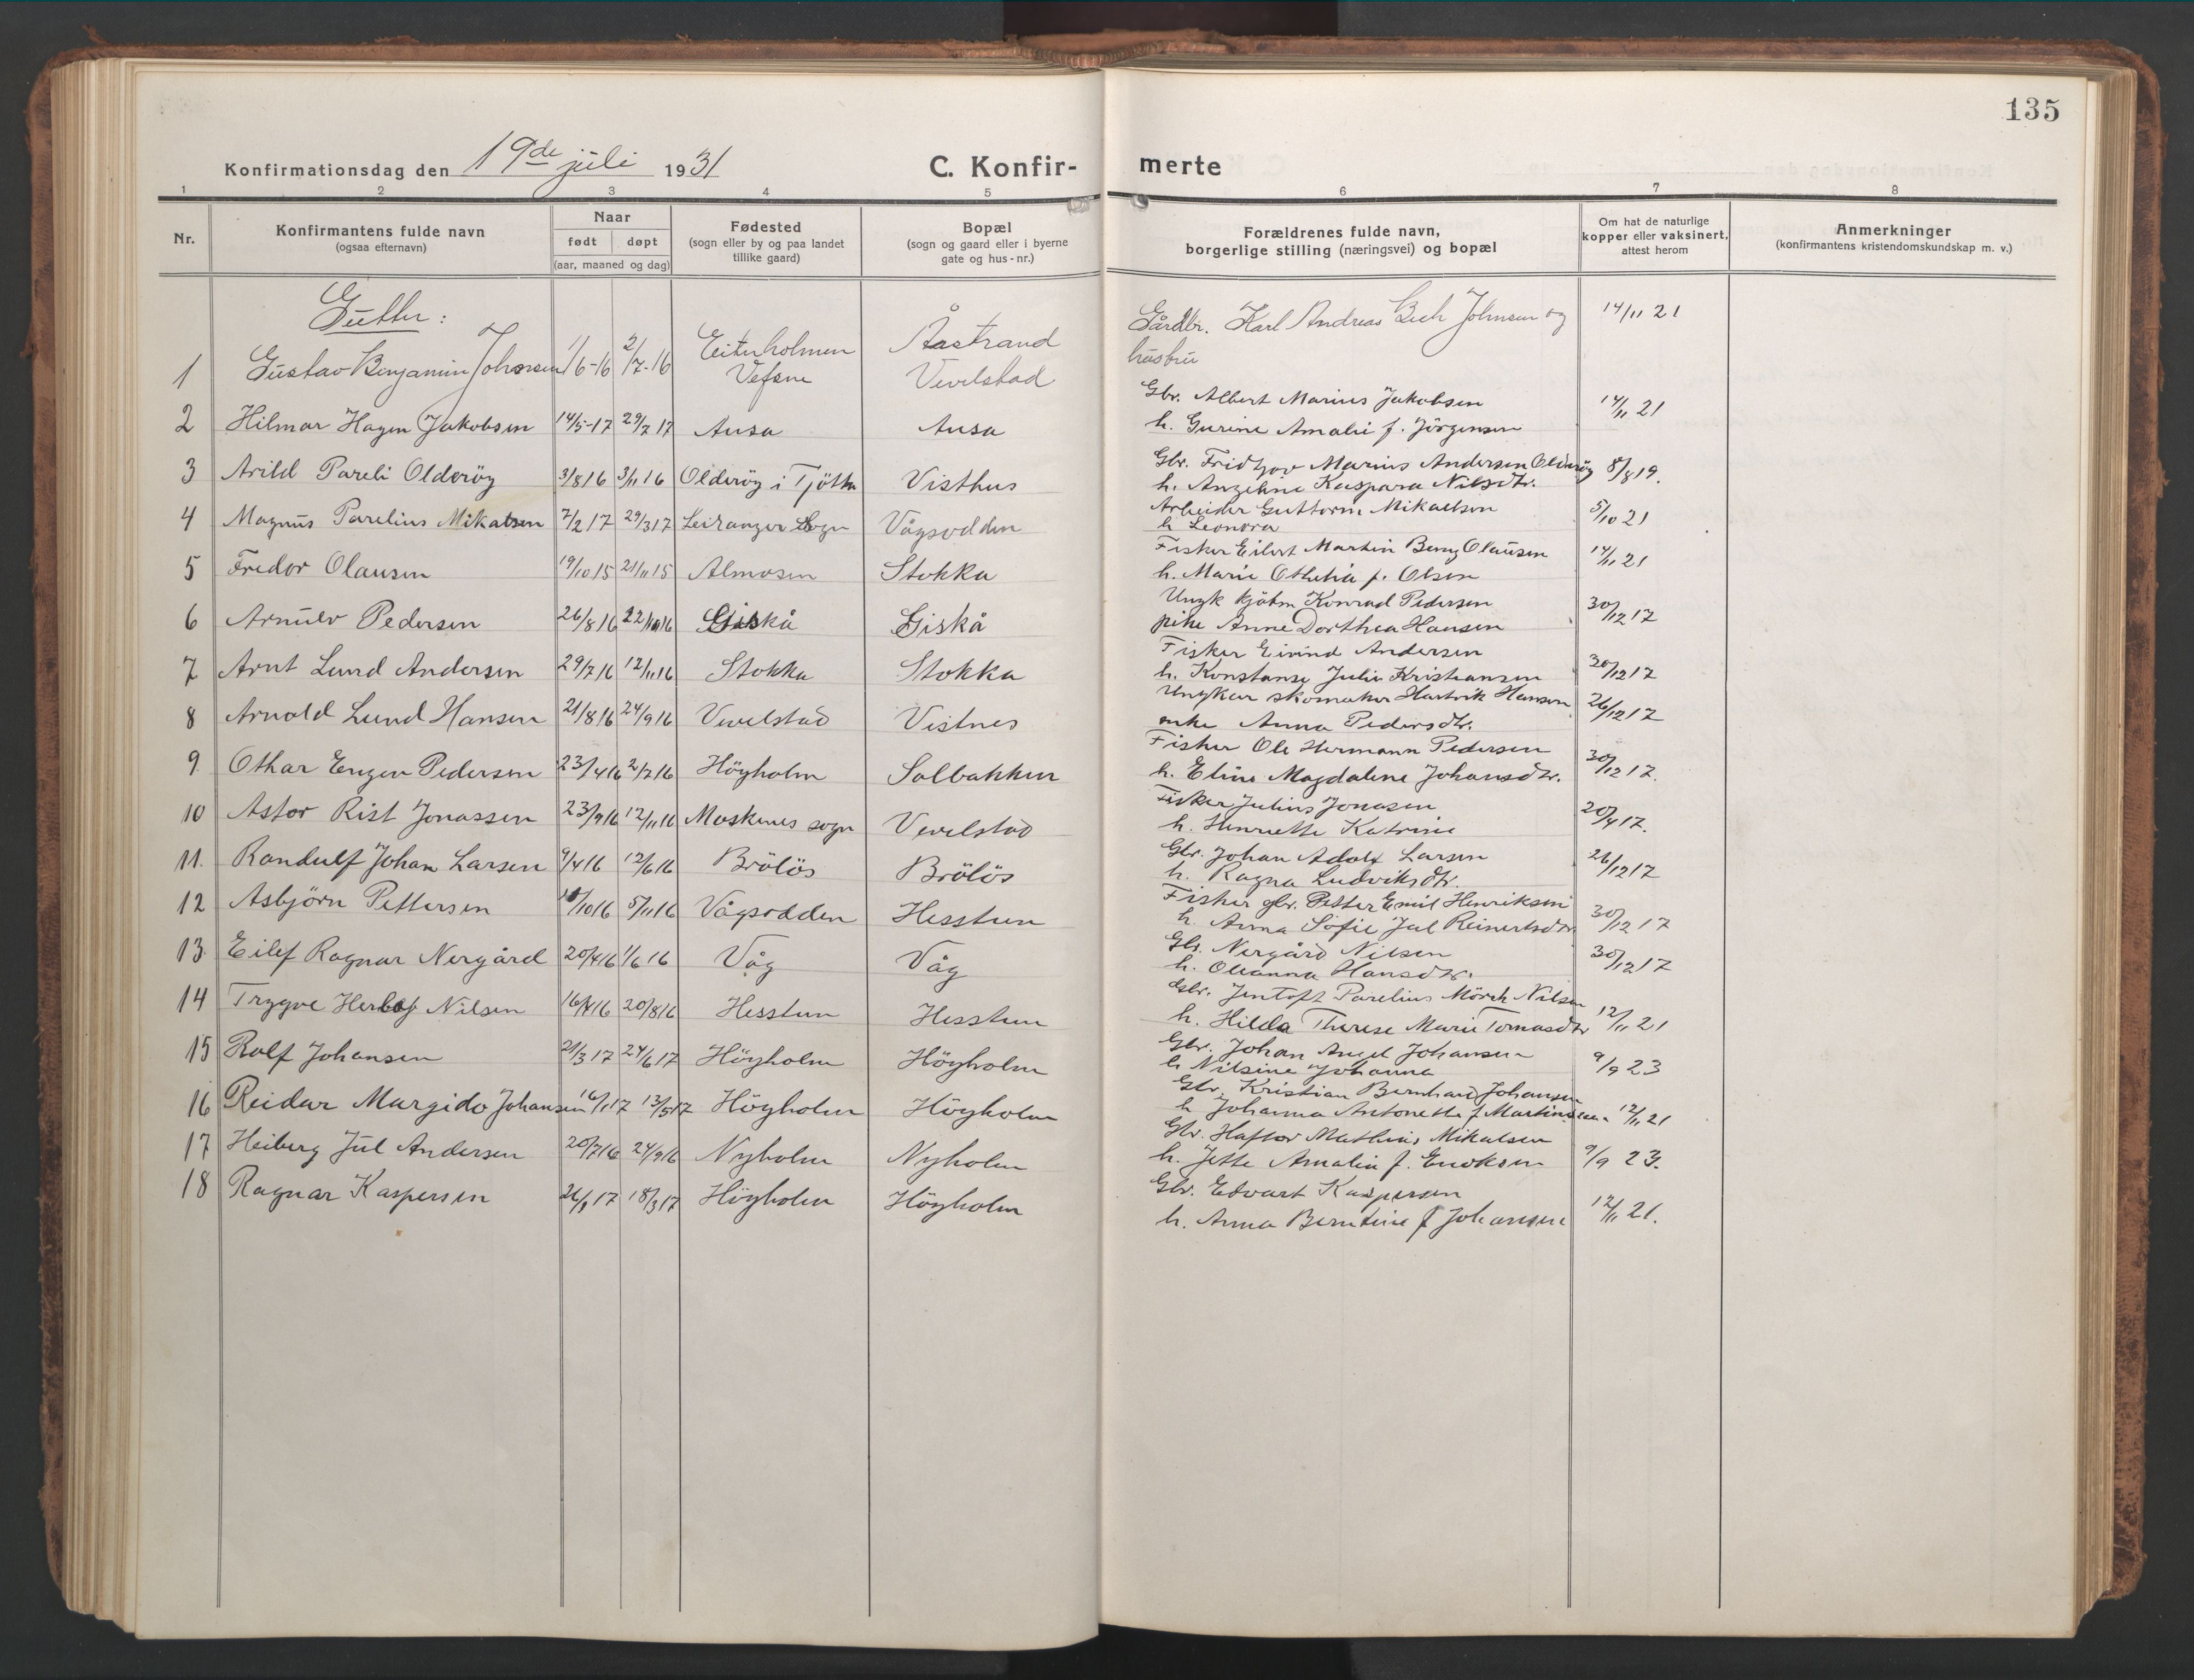 135
Konfirmationsdag den 19de juli 1931 C. Konfir- merte
1 2 3 4 5 6 7 8
Nr. Konfirmantens fulde navn (ogsaa efternavn) Naar født døpt (aar, maaned og dag) Fødested (sogn eller by og paa landet tillike gaard) Bopæl (sogn og gaard eller i byerne gate og hus-nr.) Forældrenes fulde navn, borgerlige stilling (næringsvei) og bopæl Om hat de naturlige kopper eller vaksinert, attest herom Anmerkninger (konfirmantens kristendomskundskap m. v.)
Gutter:
1 Gustav Benjamin Johnsen 1/6-16 2/7-16 Eiterholmen Vefsne Åastrand Vevelstad Gårdbr. Karl Andreas Bech Johnsen og hustru 14/11 21
2 Hilmar Hagen Jakobsen 14/5-17 29/7 17 Ausa Ausa Gbr. Albert Marius Jakobsen h. Gurine Amalie f. Jörgensen 14/11 21
3 Arild Pareli Olderöy 3/8 16 3/11 16 Olderöy i Tjötta Visthus Gbr. Fridtjov Marius Andersen Olderöy h. Angeline Kaspara Nilsdtr. 8/8 19.
4 Magnus Parelius Mikalsen 7/2 17 29/3 17 Leiranger sogn Vågsodden Arbeider Guttorm Mikaelsen h Leonora 5/10 21
5 Fredor Olausen 19/10 15 21/11 15 Almosen Stokka Fisker Eilert Martin Berg Olausen h. Marie Othelia f. Olsen 14/11 21
6 Arnulv Pedersen 26/8 16 22/10 16 Giskå Giskå Ungk kjöbm Konrad Pedersen pike Anne Dorthea Hansen 30/12 17
7 Arnt Lund Andersen 29/7 16 12/11 16 Stokka Stokka Fisker Eivind Andersen h. Konstanse Julie Kristiansen 30/12 17
8 Arnold Lund Hansen 21/8 16 24/9 16 Vevelstad Vistnes Ungkar skomaker Hartvik Hansen enke Anna Pedersdtr. 26/12 17
9 Othar Engen Pedersen 23/4 16 2/7 16 Höyholm Solbakken Fisker Ole Hermann Pedersen h. Eline Magdalene Johansdtr. 30/12 17.
10 Astor Rist Jonassen 23/9 16 12/11 16 Moskenes sogn Vevelstad Fisker Julius Jonasen h. Henriette Katrine 20/4 17.
11. Randulf Johan Larsen 9/4 16 12/6 16 Brölös Brölös Gbr. Johan Adolf Larsen h. Ragna Ludviksdtr. 26/12 17
12 Asbjörn Pettersen /10 16 5/11 16 Vågsodden Hesstun Fisker gbr. Petter Emil Henriksen h. Anna Sofie Jul Reinertsdtr. 30/12 17
13. Eilef Ragnar Nergård 20/4 16 1/6 16 Våg Våg Gbr. Nergård Nilsen h. Oleanna Hansdtr. 30/12 17
14 Trygve Herlof Nilsen 16/4 16 20/8 16 Hesstun Hesstun Gbr. Jentoft Parelius Mörch Nilsen h. Hilda Therese Marie Tomasdtr 12/11 21
15 Rolf Johansen 21/3 17 24/6 17 Höyholm Höyholm Gbr. Johan Angel Johansen h Nilsine Johanna 9/9 23
16 Reidar Margido Johansen 16/1 17 13/5 17 Höyholm Höyholm Gbr. Kristian Bernhard Johansen h Johanna Antonette f Martinsen. 12/11 21
17 Heiberg Jul Andersen 20/7 16 24/9 16 Nyholm Nyholm Gbr. Haftor Mathias Mikalsen h. Jette Amalia f. Enoksen 9/9 23.
18 Ragnar Kaspersen 26/1 17 18/3 17 Höyholm Höyholm Gbr. Edvart Kaspersen h. Anna Berntine f Johansen 12/11 21.